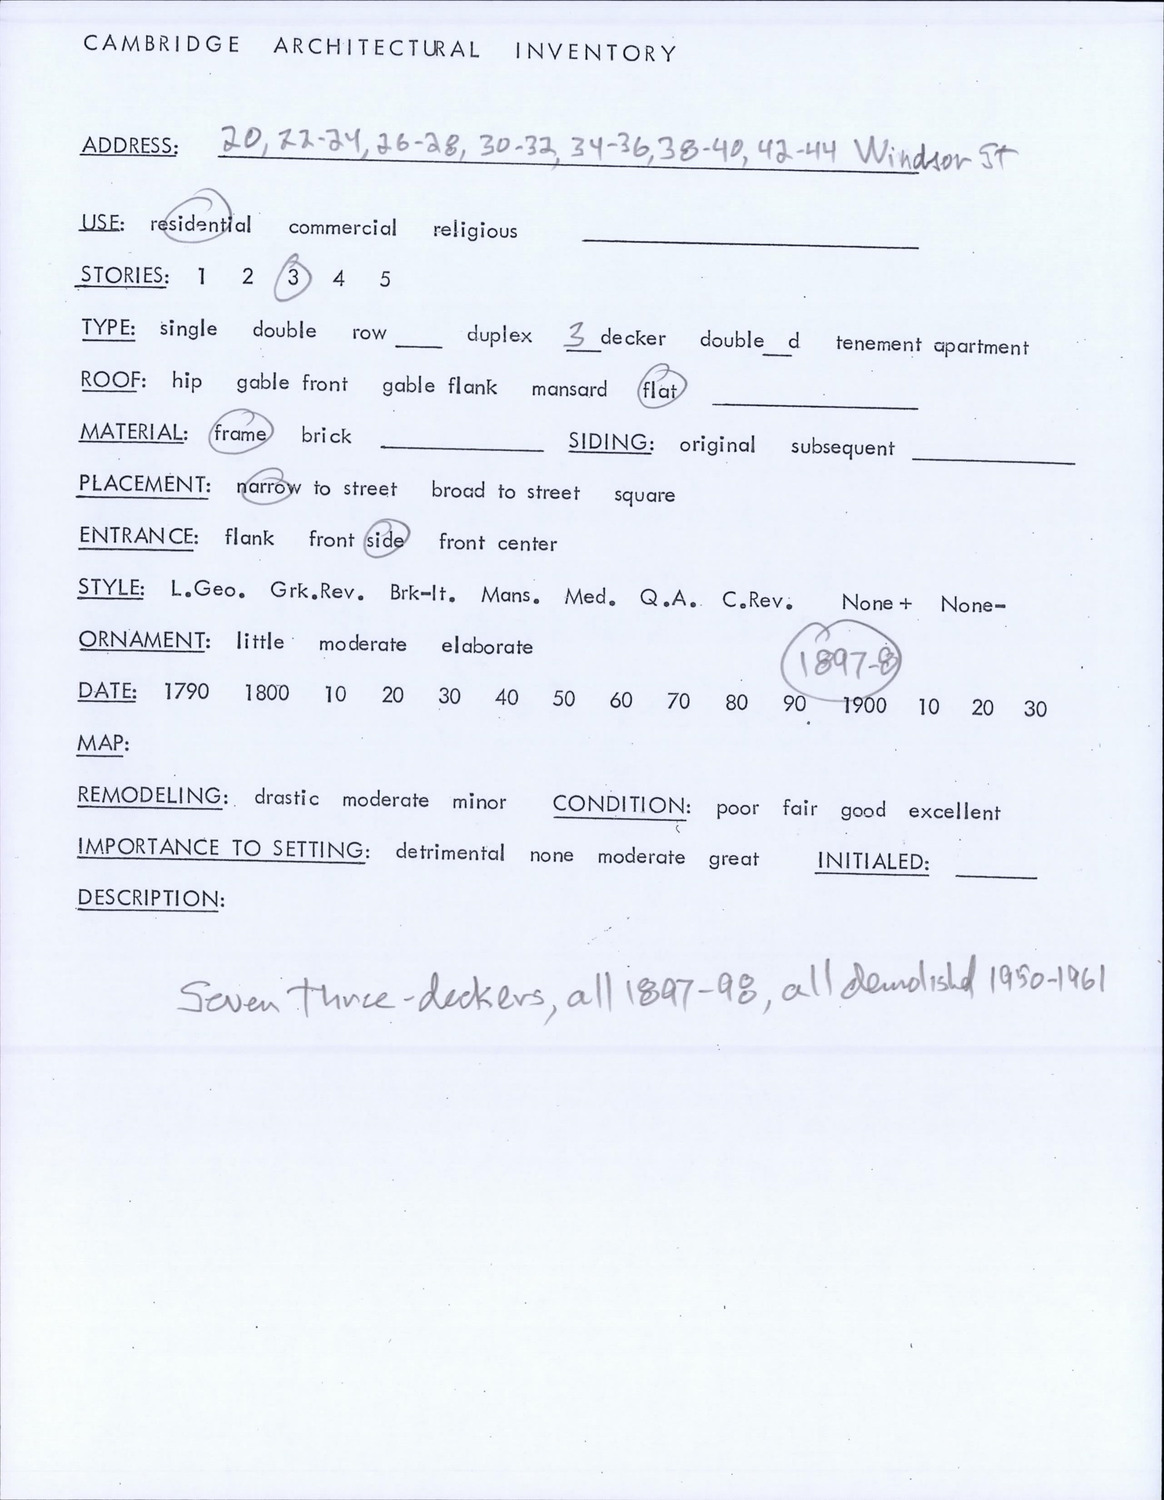 CAMBRIDGE ARCHITECTURAL INVENTORY
ADDRESS: 20, 22-24, 26-28, 30-32, 34-36, 38-40, 42-44 Windsor St
USE: residential commercial religious
STORIES: 1 2 3 4 5
TYPE: single double row ____ duplex 3 decker double __ d tenement apartment
ROOF: hip gable front gable flank mansard flat
MATERIAL: frame brick SIDING: original subsequent
PLACEMENT: narrow to street broad to street square
ENTRANCE: flank front side front center
STYLE: L.Geo. Grk.Rev. Brk-It. Mans. Med. Q.A. C.Rev. None+ None-
ORNAMENT: little moderate elaborate
1897-8
DATE: 1790 1800 10 20 30 40 50 60 70 80 90 1900 10 20 30
MAP:
REMODELING: drastic moderate minor CONDITION: poor fair good excellent
IMPORTANCE TO SETTING: detrimental none moderate great INITIALED:
DESCRIPTION:
Seven three-deckers, all 1897-98, all demolishd 1950-1961